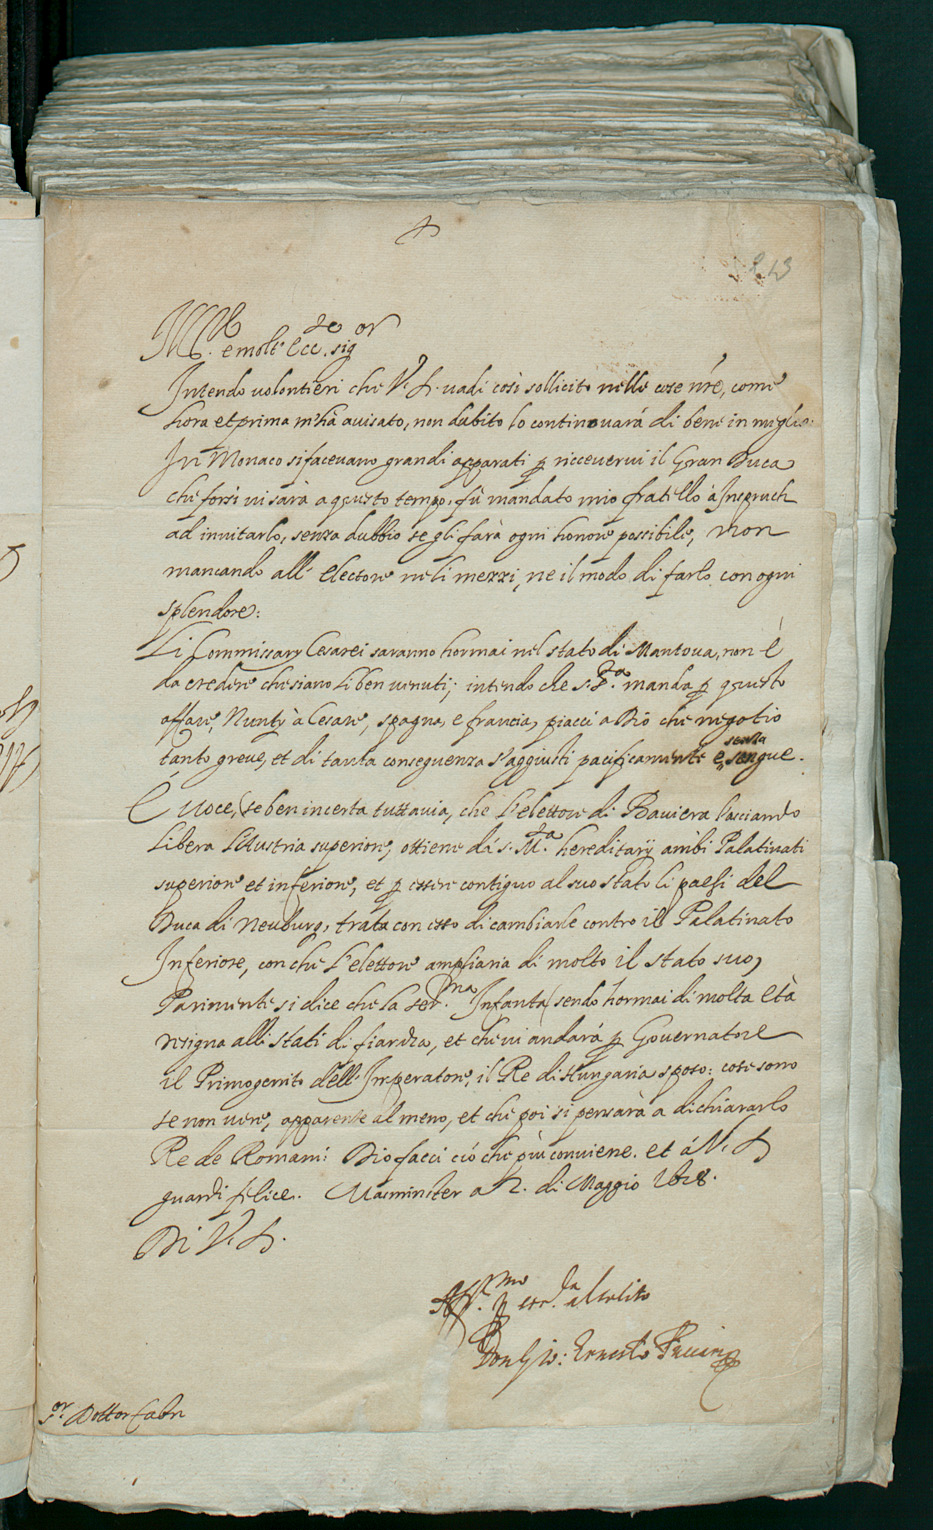 Ill.re e molt' Ecc.te sig.or
Intendo volontieri che V. S. vadi così sollicito nelle cose n're, come
hora et prima m'hà avisato, non dubito lo continovarà di bene in meglio.
In Monaco si facevano grandi apparati p riccevervi il Gran Duca
che forsi vi sarà a questo tempo, fù mandato mio fratello à Inspruch
ad invitarlo, senza dubbio se gli farà ogni honore possibile, non
mancando all' Elettore ne li mezzi, ne il modo di farlo con ogni
splendore:
Li Commissarÿ Cesarei saranno hormai nel stato di Mantova, non è
da credere che siano li ben venuti; intendo che S. S.tà manda p questo
affare, Nuntÿ à Cesare, spagna, e francia, piacci a Dio che negotio
tanto greve, et di tanta conseguenza s'aggiusti pacificamente e senza sengue.
È voce, (se ben incerta tuttavia, che l'elettore di Baviera lasciando
libera l'Austria superiore, ottiene da S. M.tà hereditarÿ ambi Palatinati
superiore et inferiore, et p essere contiguo al suo stato li paesi del
Duca di Neuburg, trata con esso di cambiarle contro il Palatinato
Inferiore, con che l'elettore ampliaria di molto il stato suo,
Parimente si dice che la ser.ma Infanta (sendo hormai di molta età
resigna alli stati di fiandra, et che vi andarà p Governatore
il Primogenito dell' Imperatore, il Re di Hungaria sposo: cose sono
se non vere, apparente al meno, et che poi si pensarà a dichiararlo
Re de Romani: Dio facci ciò che più conviene. et à V. S.
guardi felice. Masminster a 2. di Maggio 1628.
Di V. S.
Aff.mo p ser.la al solito
Don Gio: Ernesto
S.or Dottor Fabri